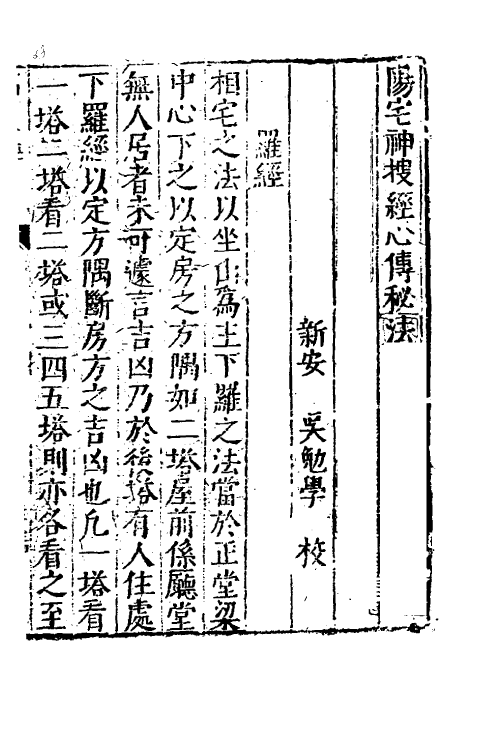 陽宅神搜經心傳秘法
新安　吳勉學　校
羅經
相宅之法以坐山為主下羅之法當於正堂梁
中心下之以定房之方隅如二塔屋前係廳堂
無人居者未可遽言吉凶乃於後塔有人住處
下羅經以定方隅斷房方之吉凶也凡一塔看
一塔二塔看二塔或三四五塔則亦各看之至